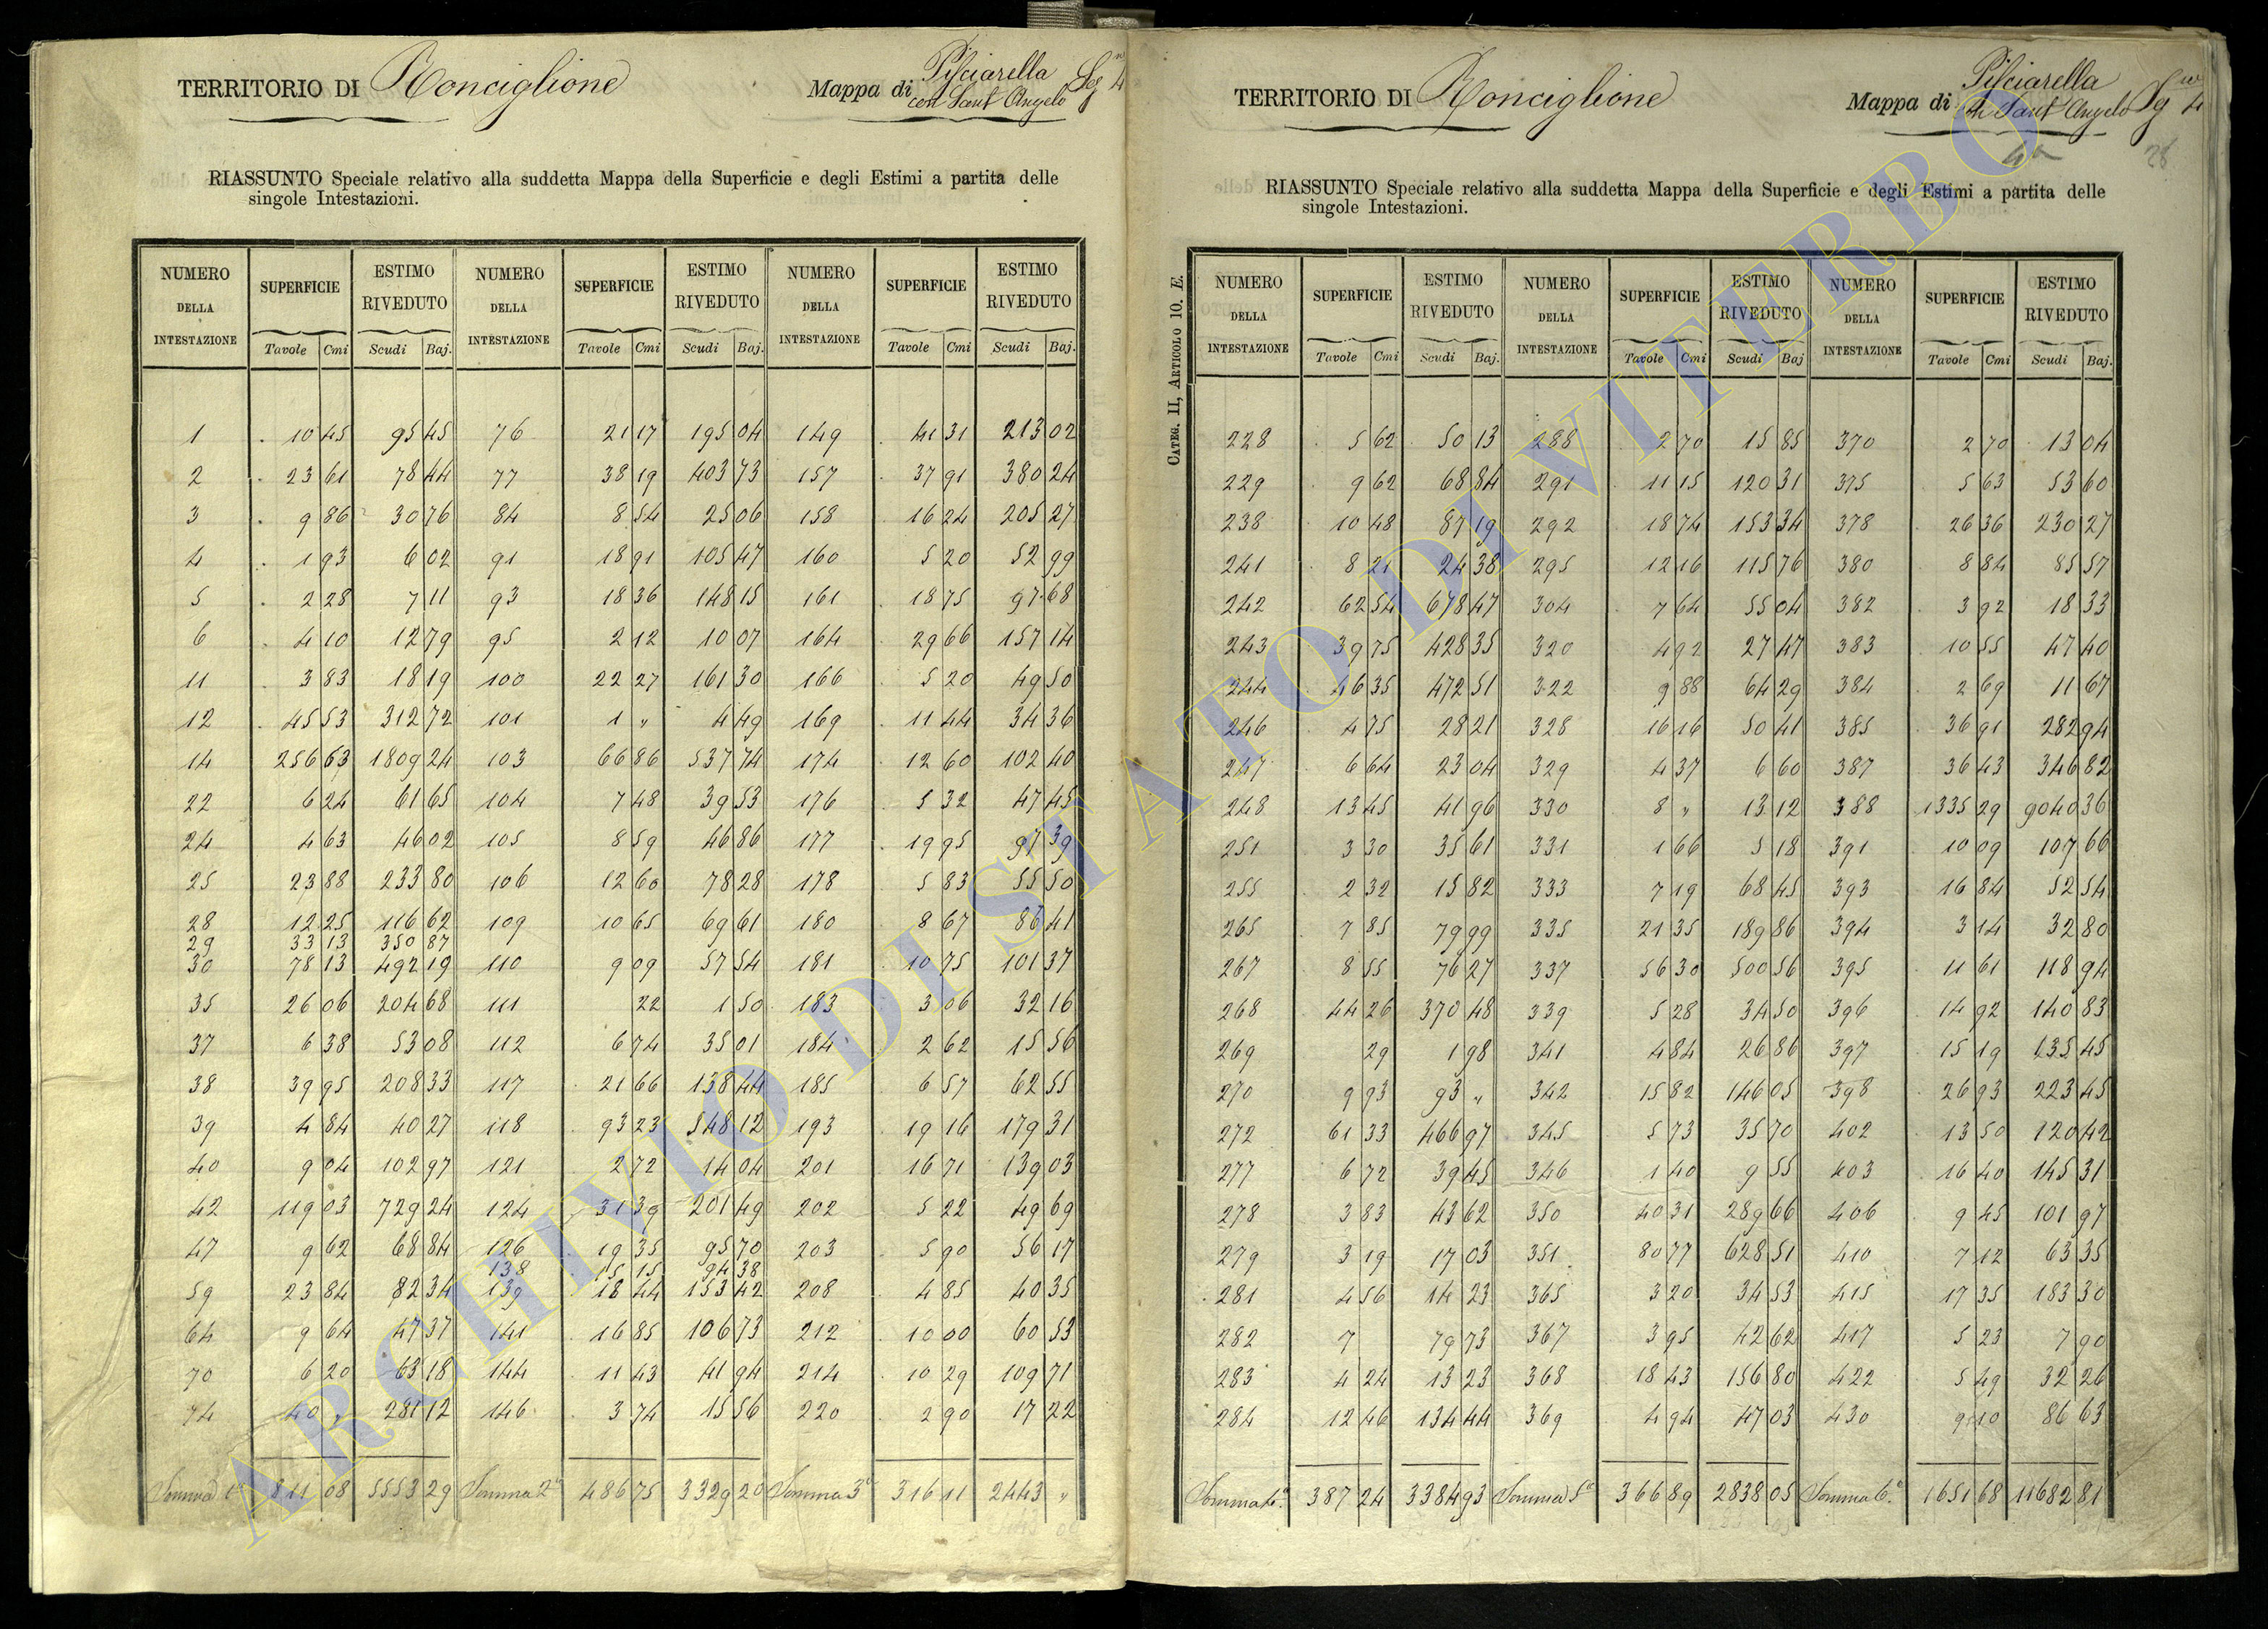 TERRITORIO DI Ronciglione
Mappa di Pisciarella
con Sant Angelo Seg.ne 4
RIASSUNTO Speciale relativo alla suddetta Mappa della Superficie e degli Estimi a partita delle
singole Intestazioni.
NUMERO DELLA INTESTAZIONE SUPERFICIE ESTIMO RIVEDUTO NUMERO DELLA INTESTAZIONE SUPERFICIE ESTIMO RIVEDUTO NUMERO DELLA INTESTAZIONE SUPERFICIE ESTIMO RIVEDUTO
Tavole Cmi Scudi Baj. Tavole Cmi Scudi Baj. Tavole Cmi Scudi Baj.
1 10 45 95 45 76 21 17 195 04 149 41 31 213 02
2 23 61 78 44 77 38 19 403 73 157 37 91 380 24
3 9 86 30 76 84 8 54 25 06 158 16 24 205 27
4 1 93 6 02 91 18 91 105 47 160 5 20 52 99
5 2 28 7 11 93 18 36 148 15 161 18 75 97 68
6 4 10 12 79 95 2 12 10 07 164 29 66 157 14
11 3 83 18 19 100 22 27 161 30 166 5 20 49 50
12 45 53 312 72 101 1 " 4 49 169 11 44 34 36
14 256 63 1809 24 103 66 86 537 74 174 12 60 102 40
22 6 24 61 65 104 7 48 39 53 176 5 32 47 45
24 4 63 46 02 105 8 59 46 86 177 19 95 97 39
25 23 88 233 80 106 12 60 78 28 178 5 83 55 50
28 12 25 116 62 109 10 65 69 61 180 8 67 86 41
29 33 13 350 87
30 78 13 492 19 110 9 09 57 54 181 10 75 101 37
35 26 06 204 68 111 22 1 50 183 3 06 32 16
37 6 38 53 08 112 6 74 35 01 184 2 62 15 56
38 39 95 208 33 117 21 66 138 44 185 6 57 62 55
39 4 84 40 27 118 93 23 548 12 193 19 16 179 31
40 9 04 102 97 121 2 72 14 04 201 16 71 139 03
42 119 03 729 24 124 31 39 201 49 202 5 22 49 69
47 9 62 68 84 126 19 35 95 70 203 5 90 56 17
138 15 15 94 38
59 23 84 82 34 139 18 44 153 42 208 4 85 40 35
64 9 64 47 37 141 16 85 106 73 212 10 00 60 53
70 6 20 63 18 144 11 43 41 94 214 10 29 109 71
74 40 " 281 12 146 3 74 15 56 220 2 90 17 22
Somma 1a 811 08 5553 29 Somma 2a 486 75 3329 20 Somma 3a 316 11 2443 "
TERRITORIO DI Ronciglione
Mappa di Pisciarella
di Sant Angelo Seg.ne 4
28
RIASSUNTO Speciale relativo alla suddetta Mappa della Superficie e degli Estimi a partita delle
singole Intestazioni.
CATEG. II, ARTICOLO 10. E.
NUMERO DELLA INTESTAZIONE SUPERFICIE ESTIMO RIVEDUTO NUMERO DELLA INTESTAZIONE SUPERFICIE ESTIMO RIVEDUTO NUMERO DELLA INTESTAZIONE SUPERFICIE ESTIMO RIVEDUTO
Tavole Cmi Scudi Baj. Tavole Cmi Scudi Baj Tavole Cmi Scudi Baj.
228 5 62 50 13 288 2 70 15 85 370 2 70 13 04
229 9 62 68 84 291 11 15 120 31 375 5 63 53 60
238 10 48 87 19 292 18 74 153 34 378 26 36 230 27
241 8 21 24 38 295 12 16 115 76 380 8 84 85 57
242 62 54 678 47 304 7 64 55 04 382 3 92 18 33
243 39 75 428 35 320 4 92 27 47 383 10 55 47 40
244 46 35 472 51 322 9 88 64 29 384 2 69 11 67
246 4 75 28 21 328 16 16 50 41 385 36 91 282 94
247 6 64 23 04 329 4 37 6 60 387 36 43 346 82
248 13 45 41 96 330 8 " 13 12 388 1335 29 9040 36
251 3 30 35 61 331 1 66 5 18 391 10 09 107 66
255 2 32 15 82 333 7 19 68 45 393 16 84 52 54
265 7 85 79 99 335 21 35 189 86 394 3 14 32 80
267 8 55 76 27 337 56 30 500 56 395 11 61 118 94
268 44 26 370 48 339 5 28 34 50 396 14 92 140 83
269 29 1 98 341 4 84 26 86 397 15 19 135 45
270 9 93 93 " 342 15 82 146 05 398 26 93 223 45
272 61 33 466 97 345 5 73 35 70 402 13 50 120 42
277 6 72 39 45 346 1 40 9 55 403 16 40 145 31
278 3 83 43 62 350 40 31 289 66 406 9 45 101 97
279 3 19 17 03 351 80 77 628 51 410 7 12 63 35
281 4 56 14 23 365 3 20 34 53 415 17 35 183 30
282 7 79 73 367 3 95 42 62 417 5 23 7 90
283 4 24 13 23 368 18 43 156 80 422 5 49 32 26
284 12 46 134 44 369 4 94 47 03 430 9 10 86 63
Somma 4a 387 24 3384 93 Somma 5a 366 89 2838 05 Somma 6a 1651 68 11682 81
ARCHIVIO DI STATO DI VITERBO